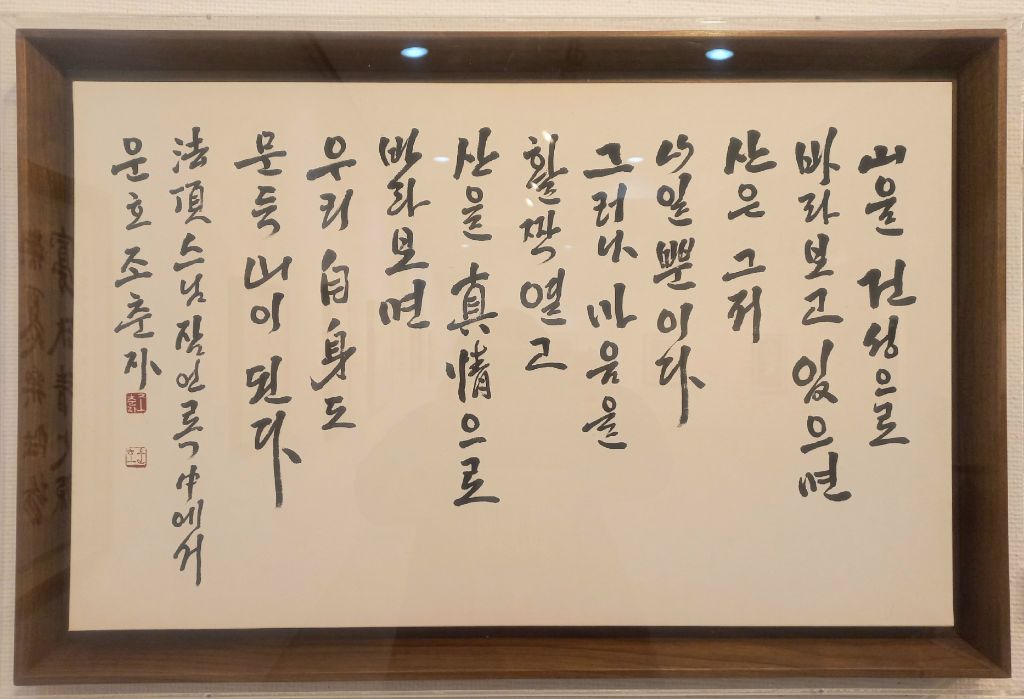 山을 건성으로
바라보고 있으면
산은 그저
山일 뿐이다
그러나 마음을
활짝 열고
산을 真情으로
바라보면
우리 自身도
문득 山이 된다
法頂스님 잠언록 中에서
운호 조춘자